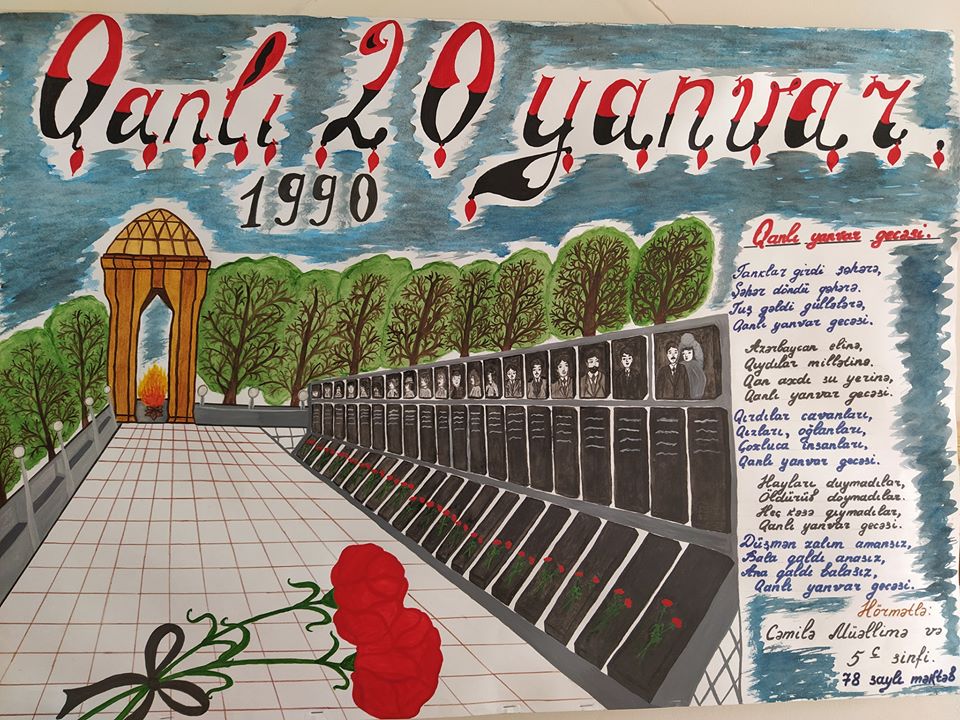 Qanlı 20 yanvar.
1990
Qanlı yanvar gecəsi.
Tanklar girdi şəhərə,
Şəhər döndü qəhərə.
Tuş gəldi güllələrə,
Qanlı yanvar gecəsi.
Azərbaycan elinə,
Qıydılar millətinə.
Qan axdı su yerinə,
Qanlı yanvar gecəsi.
Qırdılar cavanları,
Qızları, oğlanları,
Çoxluca insanları,
Qanlı yanvar gecəsi.
Hayları duymadılar,
Öldürüb doymadılar.
Heç kəsə qıymadılar,
Qanlı yanvar gecəsi.
Düşmən zalım amansız,
Bala qaldı anasız,
Ana qaldı balasız,
Qanlı yanvar gecəsi.
Hörmətlə:
Cəmilə Müəllimə və
5 c sinfi.
78 saylı məktəb